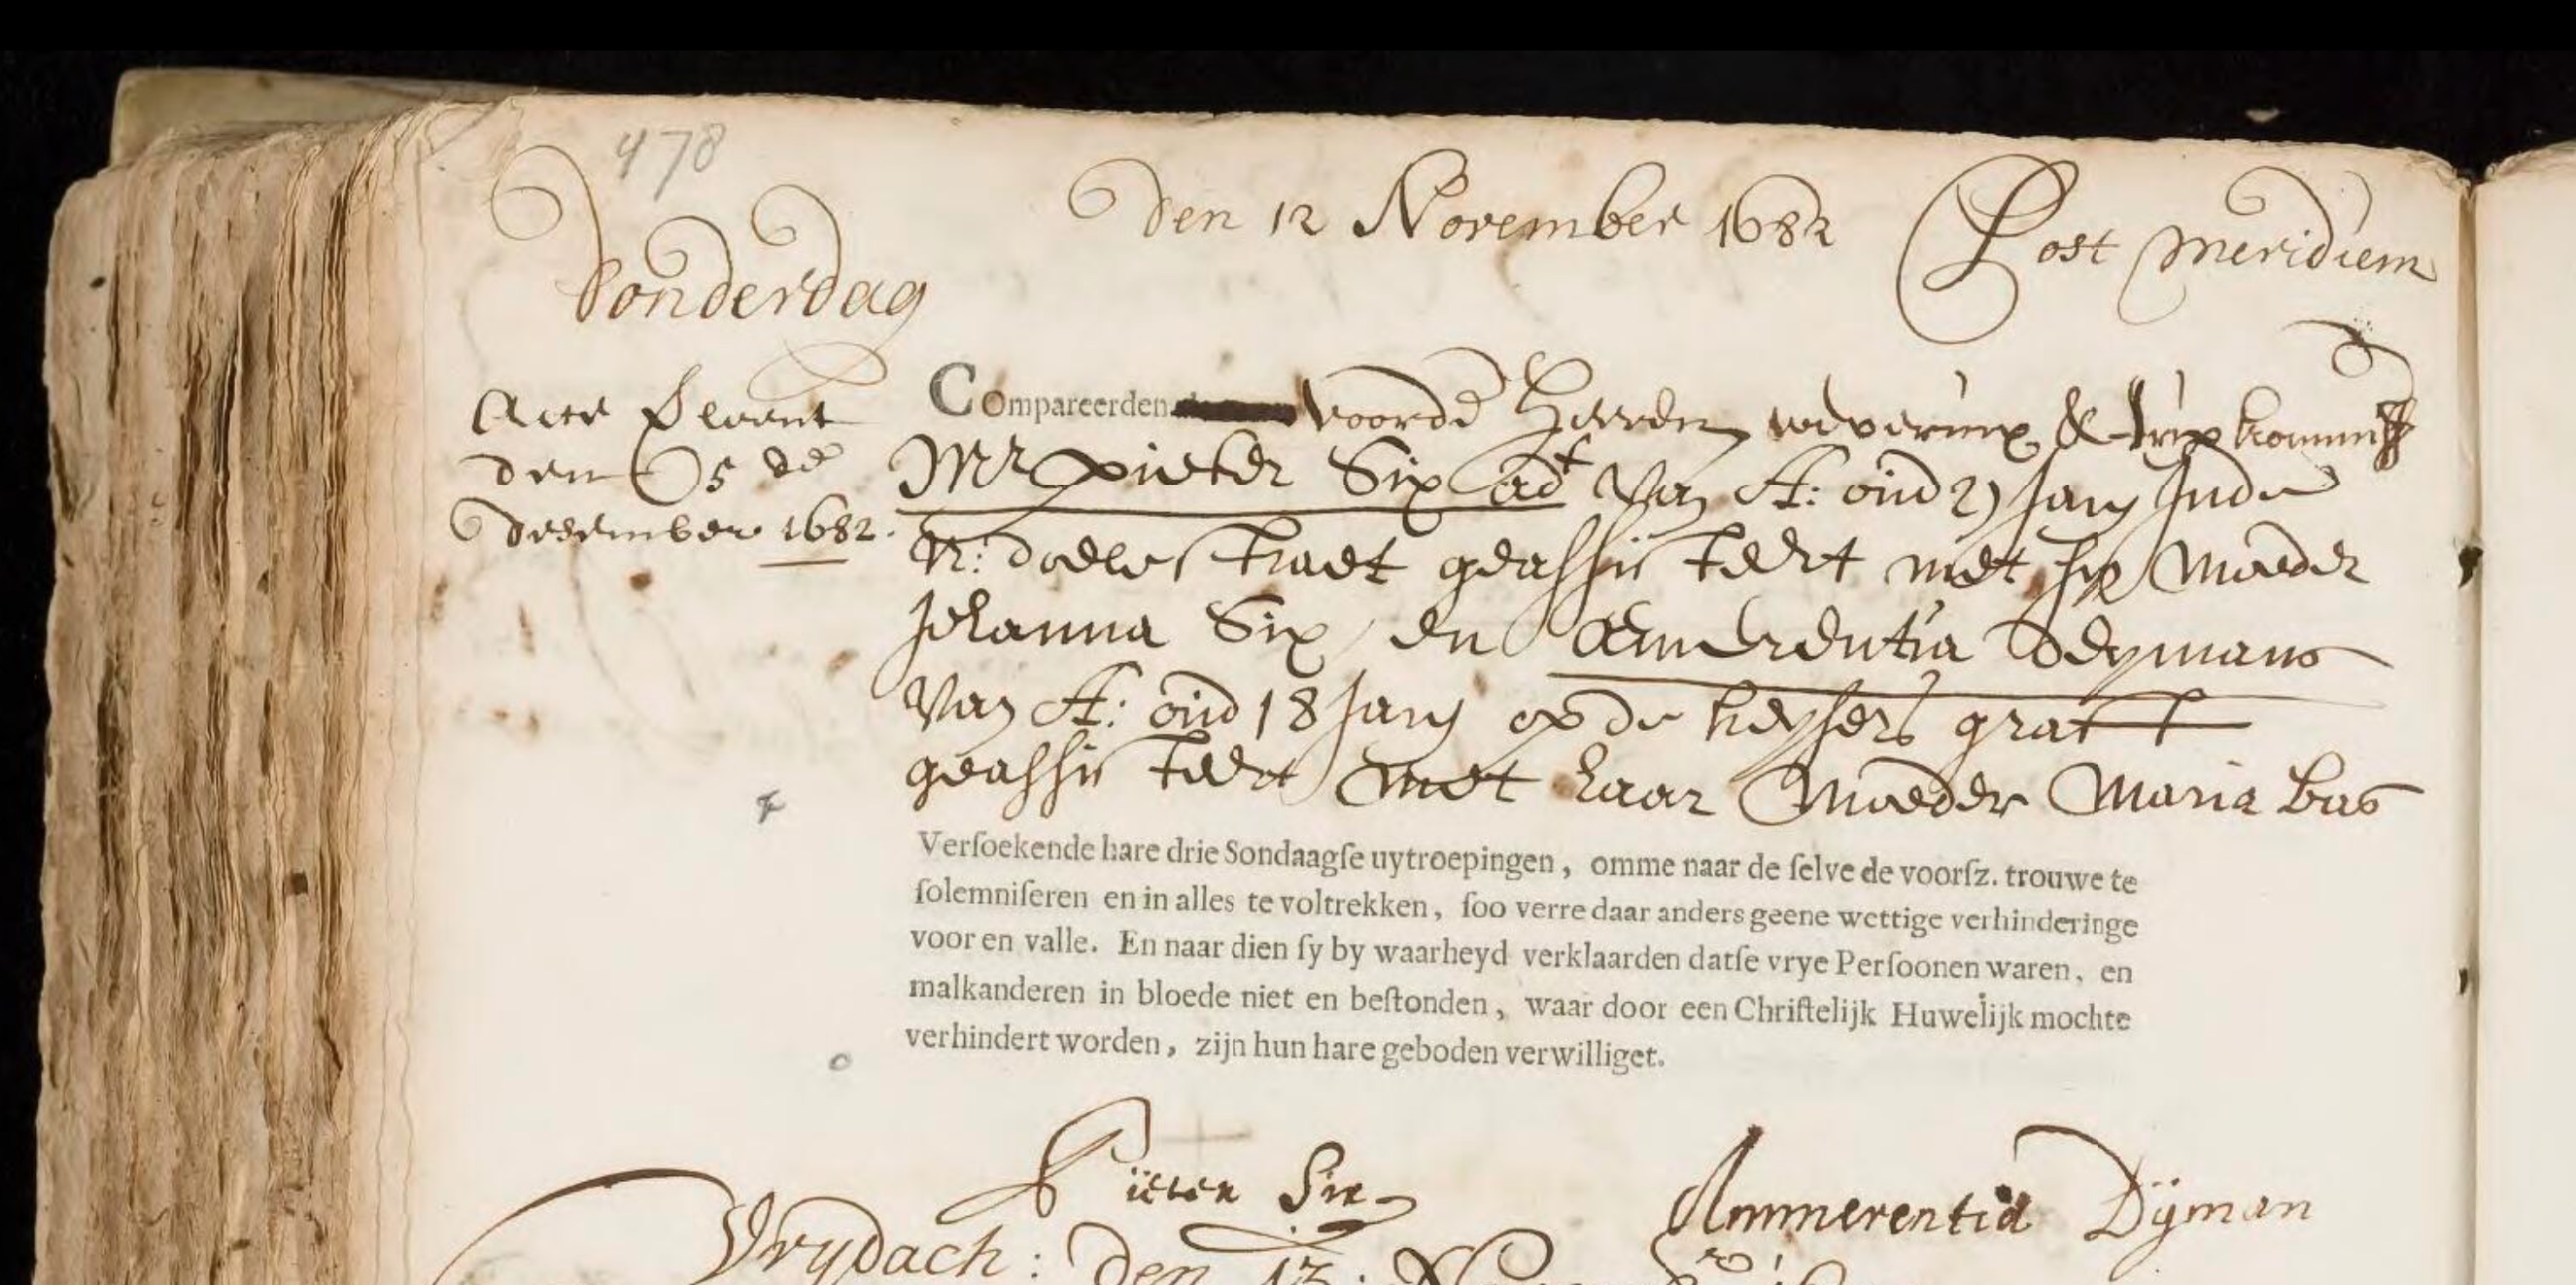 478
Donderdag
Den 12 November 1682 Post Meridiem
Acte Verleent
den 5 de
desember 1682.
Compareerden voorde Heeren & Trip Commiss
Mr Pieter Six adt Van A: oud 27 Jary Inde
N: doelestraet geassisteert met syn Moeder
Johanna Six, en Aemerentia Deymans
Van A: oud 18 Jary op de keysers graft
geassisteert met haar Moeder Maria Bas
Verſoekende hare drie Sondaagſe uytroepingen, omme naar de ſelve de voorſz. trouwe te
ſolemniſeren en in alles te voltrekken, ſoo verre daar anders geene wettige verhinderinge
voor en valle. En naar dien ſy by waarheyd verklaarden datſe vrye Perſoonen waren, en
malkanderen in bloede niet en beſtonden, waar door een Chriſtelijk Huwelijk mochte
verhindert worden, zijn hun hare geboden verwilliget.
Pieter Six Ammerentia Dÿman
Vrydach: Den 13: